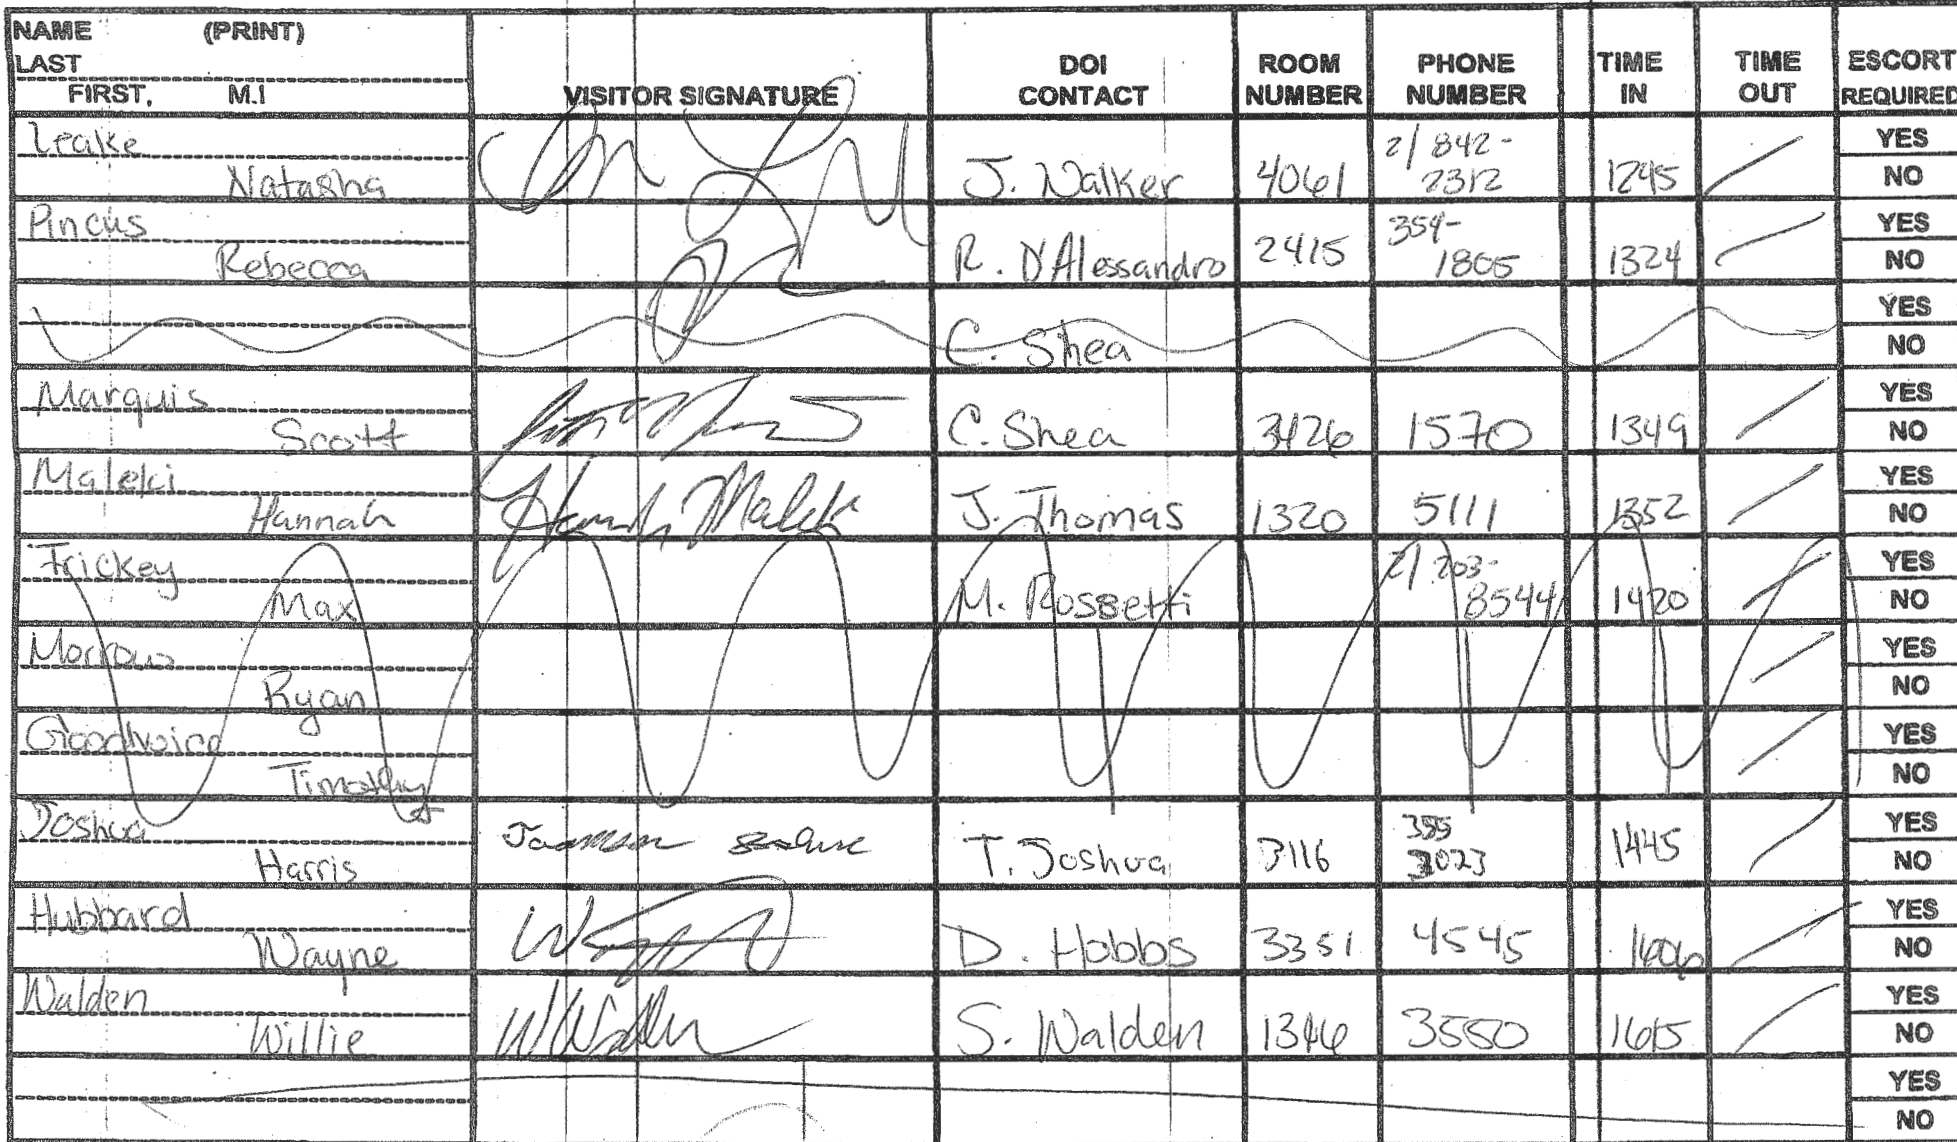 NAME (PRINT)
LAST
FIRST, M.I
VISITOR SIGNATURE
DOI CONTACT
ROOM NUMBER
PHONE NUMBER
TIME IN
TIME OUT
ESCORT REQUIRED
Leake
Natasha
J. Walker 4061 2/ 842-2312 1245 YES NO
Pincus
Rebecca
R. D'Alessandro 2415 354-1805 1324 YES NO
C. Shea YES NO
Marquis
Scott
C. Shea 3426 1570 1349 YES NO
Maleki
Hannah
Hannah Maleki J. Thomas 1320 5111 1352 YES NO
Frickey
Max
M. Rossetti 2/ 203-8544 1420 YES NO
Morrow
Ryan
YES NO
Timothy
YES NO
Joshua
Harris
T. Joshua 3116 355 3023 1445 YES NO
Hubbard
Wayne
D. Hobbs 3351 4545 1606 YES NO
Walden
Willie
S. Walden 1346 3550 1615 YES NO
YES NO